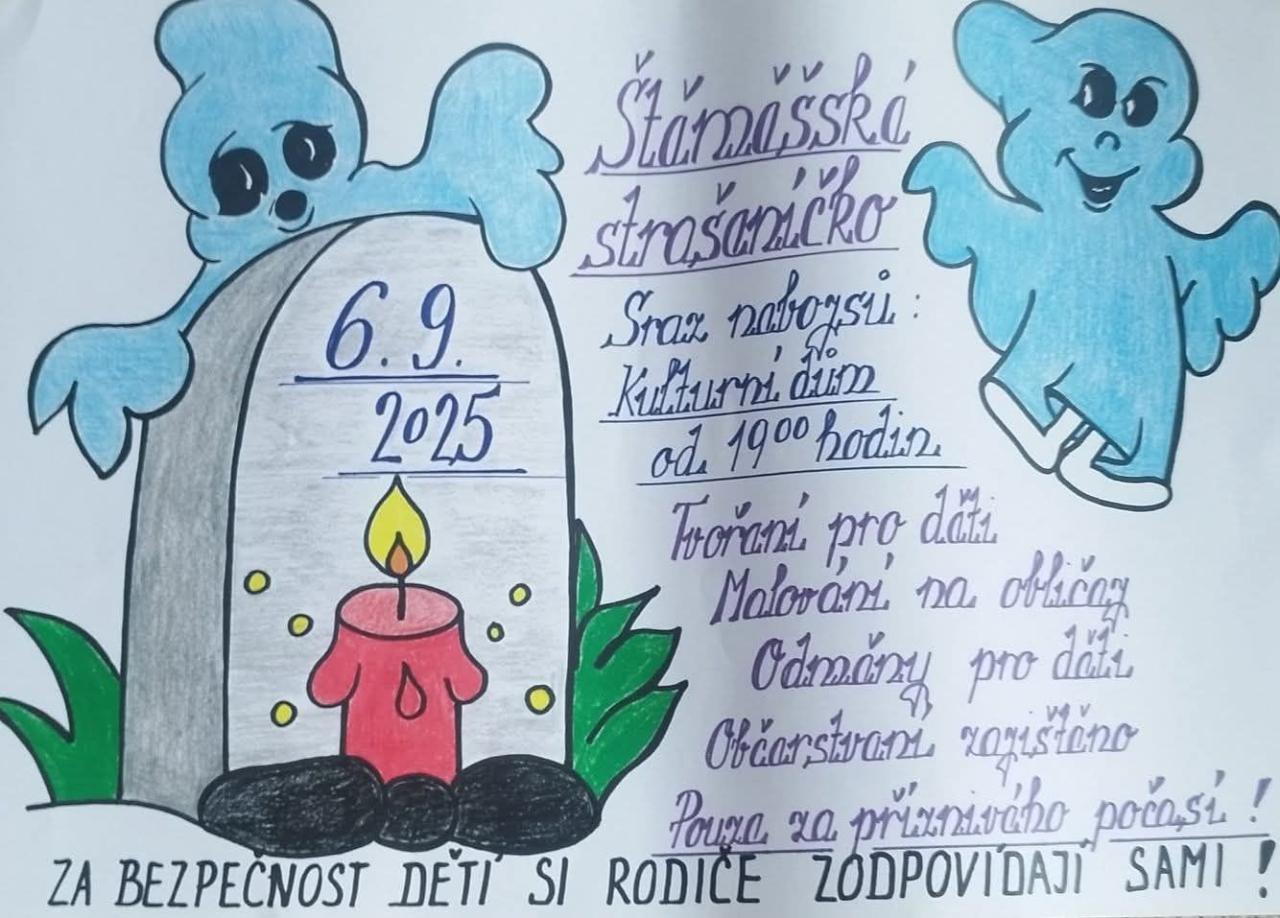 6. 9.
2025
Štěměšské
strašeníčko
Sraz nebojsů :
Kulturní dům
od 19⁰⁰ hodin
Tvoření pro děti
Malování na obličej
Odměny pro děti
Občerstvení zajištěno
Pouze za příznivého počasí !
ZA BEZPEČNOST DĚTÍ SI RODIČE ZODPOVÍDAJÍ SAMI !